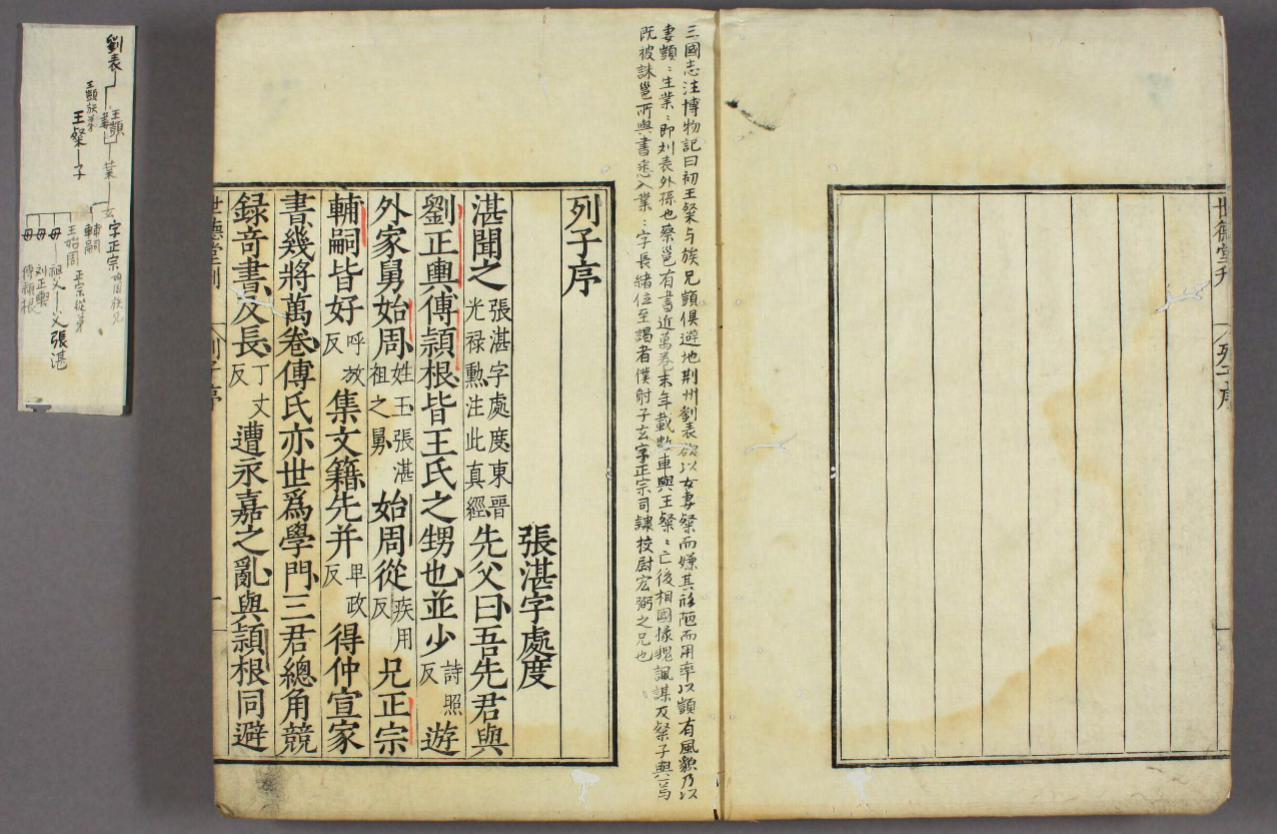 世德堂刊 列子序
三國志注博物記曰初王粲与族兄顗俱避地荆州劉表欲以女妻粲而嫌其形陋而用率以顗有風貌乃以
妻顗:生業:即刘表外孫也蔡邕有書近萬卷末年載数車與王粲:亡後相國掾魏諷謀反粲子與焉
既被誅邕所與書悉入業:字長緒位至謁者僕射子玄字正宗司隸校尉宏弼之兄也
列子序
張湛字處度
湛聞之張湛字處度東晉光禄勳注此真經先父曰吾先君與
劉正輿傅頴根皆王氏之甥也並少詩照反遊
外家舅始周姓王張湛祖之舅始周從疾用反兄正宗
輔嗣皆好呼放反集文籍先并卑政反得仲宣家
書幾將萬卷傅氏亦世爲學門三君總角競
録奇書及長丁丈反遭永嘉之亂與頴根同避
世德堂刊 列子序 一
劉表
王顗 妻
業
玄 字正宗 始周族兄
輔嗣
王顗族弟
王粲 子
王始周 正宗從弟
母 祖父 父 張湛
母 刘正輿
母 傅頴根